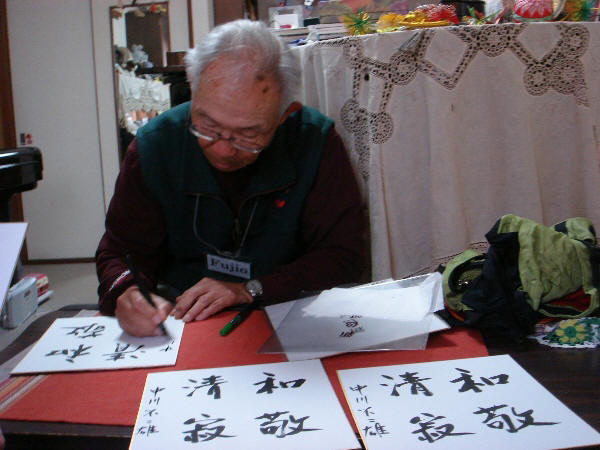 Fujio
和敬
清
和敬
清寂
中川不二雄
和敬
清寂
中川不二雄